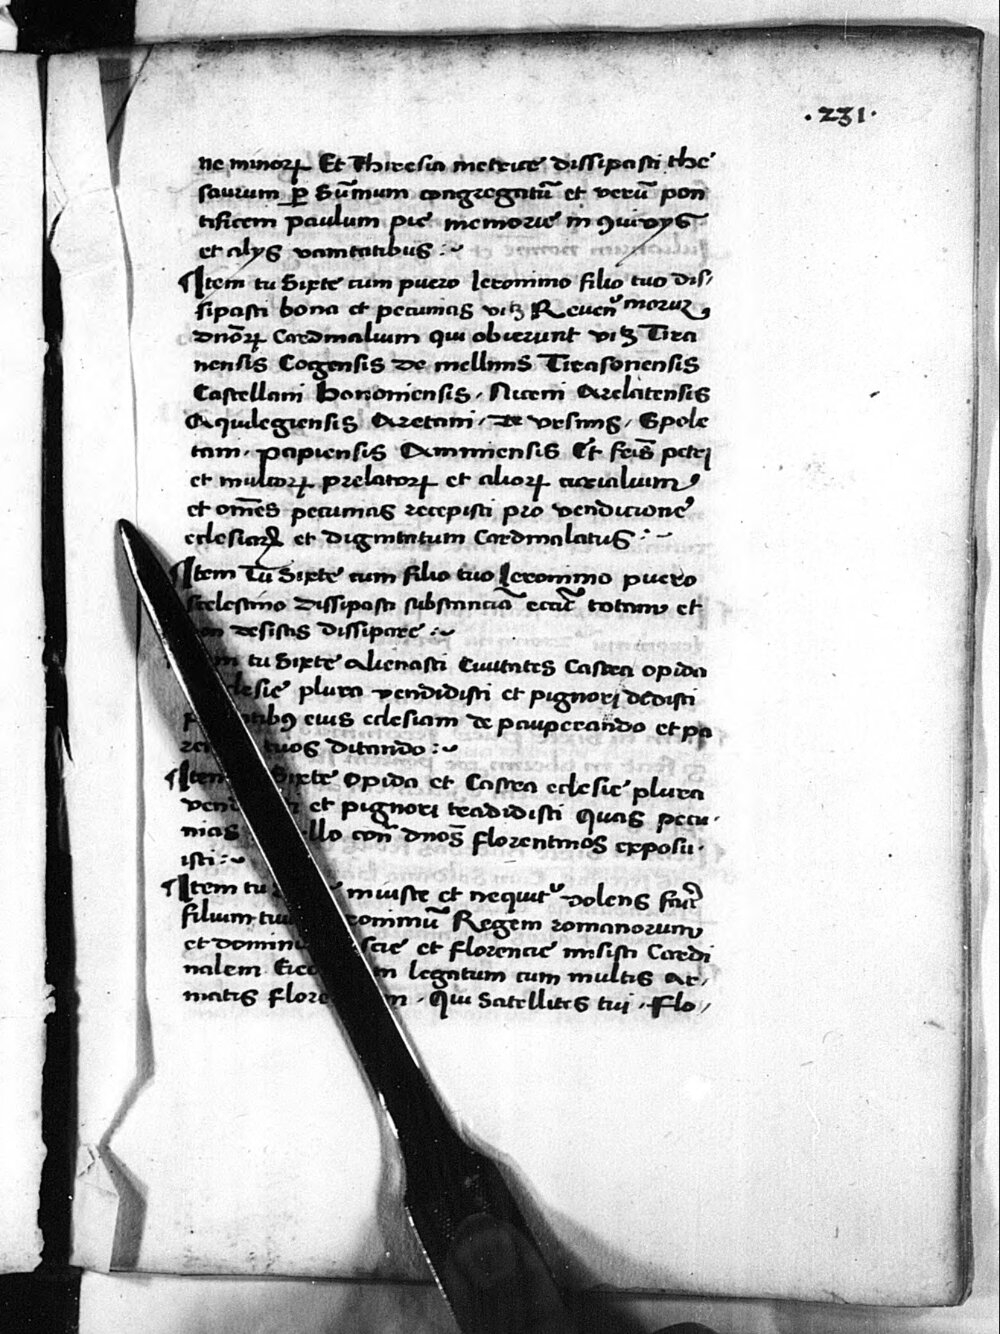 .231.
ne minorꝝ Et Thiresia metrice dissipasti the
saurum ꝑ Su̅mum congregatu̅ et veru̅ pon
tificem paulum pie memorie in
et alys vanitatibus :~
¶Item tu Sixte cum puero Ieronimo filio tuo dis/
sipasti bona et pecunias viꝫ Reuen morum
dno̅rꝝ Cardinalium qui obierunt viꝫ Tira
nensis Cogensis de mellinis Tirasonensis
Castellani Bononiensis. Niceni Arelatensis
Aquilegiensis Aretani / de vrsinis / Spole
tani. papiensis Ammiensis Et petri
et multorꝝ prelatorꝝ et aliorꝝ curialium
et om̅es pecunias recepisti pro vendicione
eclesiarꝝ et dignitatum Cardinalatus :~
¶Item Tu̅ Sixte cum filio tuo Ieronimo puero
scelestino dissipasti substancia̅ totam et
desistis dissipare :~
tu Sixte alienasti Ciuitates Castra opida
plura vendidisti et pignori dedisti
eius eclesiam de pauperando et pa
tuos ditando :~
¶Item Sixte opida et Castra eclesie plura
et pignori tradidisti Quas pecu-
nias con̅ dnos̅ florentinos exposu-
isti :~
¶Item tu iniuste et nequit volens
filium Regem romanorum
et et florencie misisti Cardi
nalem legatum cum multis ar/
matis . Qui Satellites tui / flo/